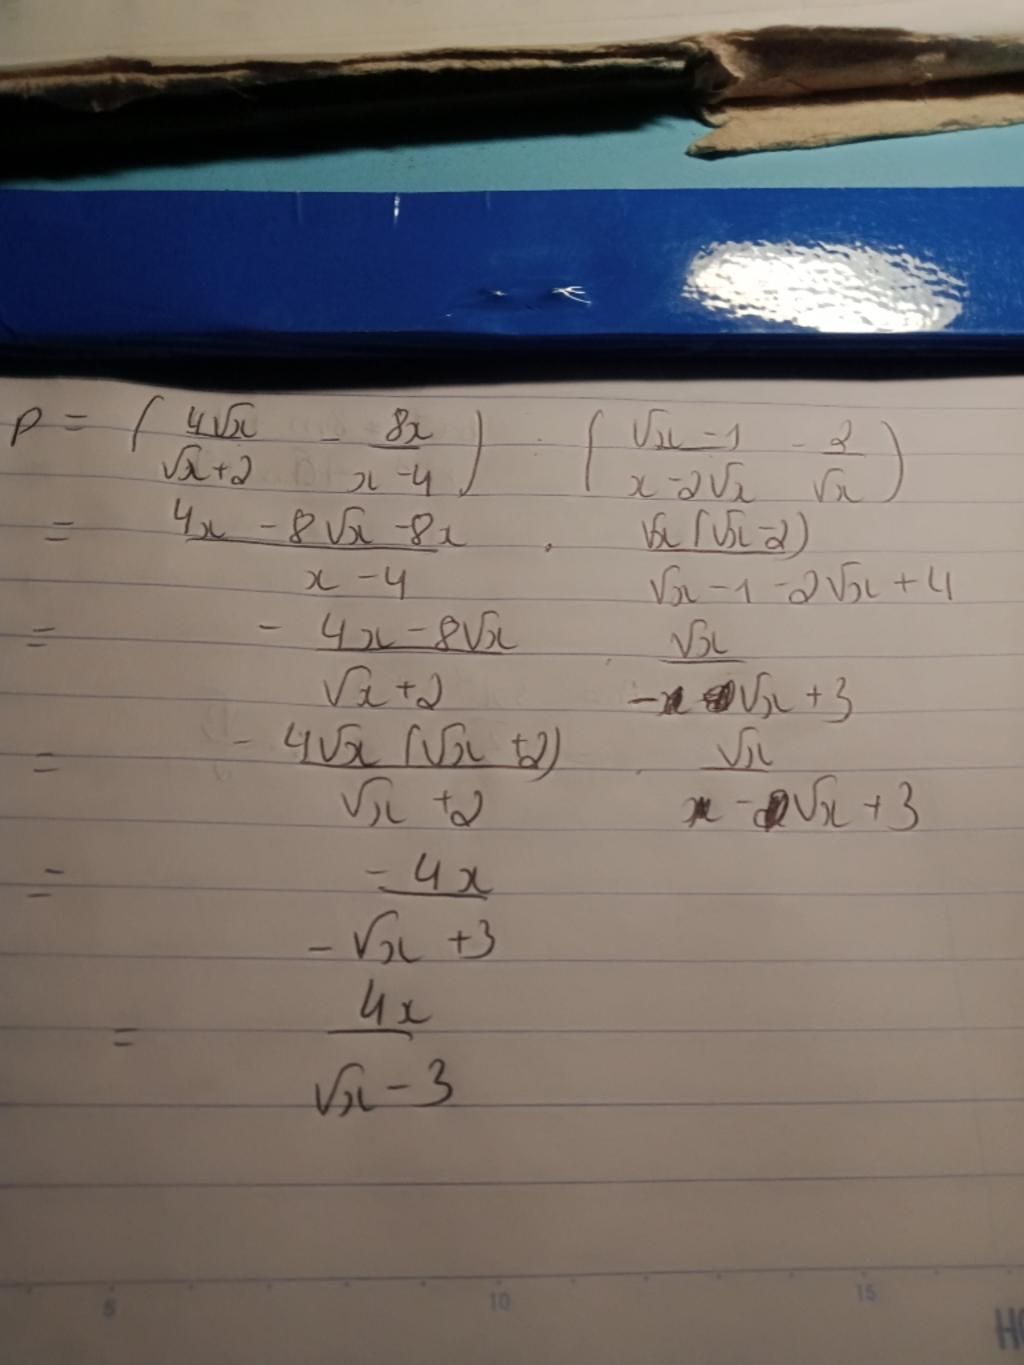 P = ( 4√x / √x+2 - 8x / x-4 ) : ( √x-1 / x-2√x - 2 / √x )
= 4x - 8√x - 8x / x-4 . √x(√x-2) / √x-1-2√x+4
= - 4x-8√x / √x+2 . √x / -√x+3
= - 4√x(√x+2) / √x+2 . √x / -√x+3
= -4x / -√x+3
= 4x / √x-3
5 10 15